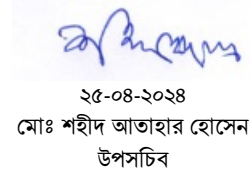 ২৫-০৪-২০২৪
মোঃ শহীদ আতাহার হোসেন
উপসচিব